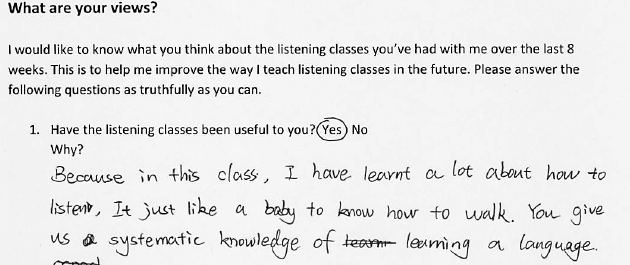 What are your views?
I would like to know what you think about the listening classes you've had with me over the last 8
weeks. This is to help me improve the way I teach listening classes in the future. Please answer the
following questions as truthfully as you can.
1. Have the listening classes been useful to you? Yes No
Why?
Because in this class, I have learnt a lot about how to
listen, It just like a baby to know how to walk. You give
us a systematic knowledge of learn learning a language.